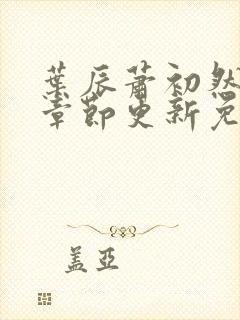 葉辰蕭初然
章節更新免
盖亞